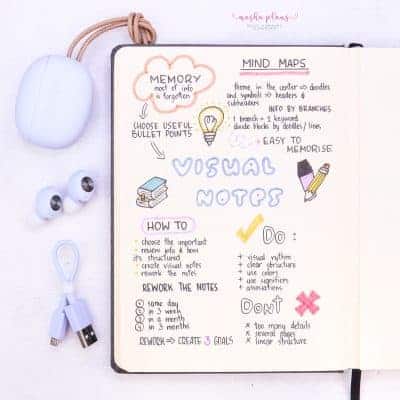 masha plans
MEMORY
most of info
is forgotten
CHOOSE USEFUL
BULLET POINTS
MIND MAPS
theme in the center => doodles
and symbols => headers &
subheaders
INFO BY BRANCHES
1 branch = 1 keyword
divide blocks by doodles / lines
EASY TO
MEMORISE
VISUAL
NOTES
HOW TO
choose the important
review info & how
it's structured
create visual notes
rework the notes
REWORK THE NOTES
same day
in 1 week
in a month
in 3 months
REWORK => CREATE 3 GOALS
Do:
+ visual rhythm
+ clear structure
+ use colors
+ use signifiers
+ associations
Don't
x too many details
x several pages
x linear structure